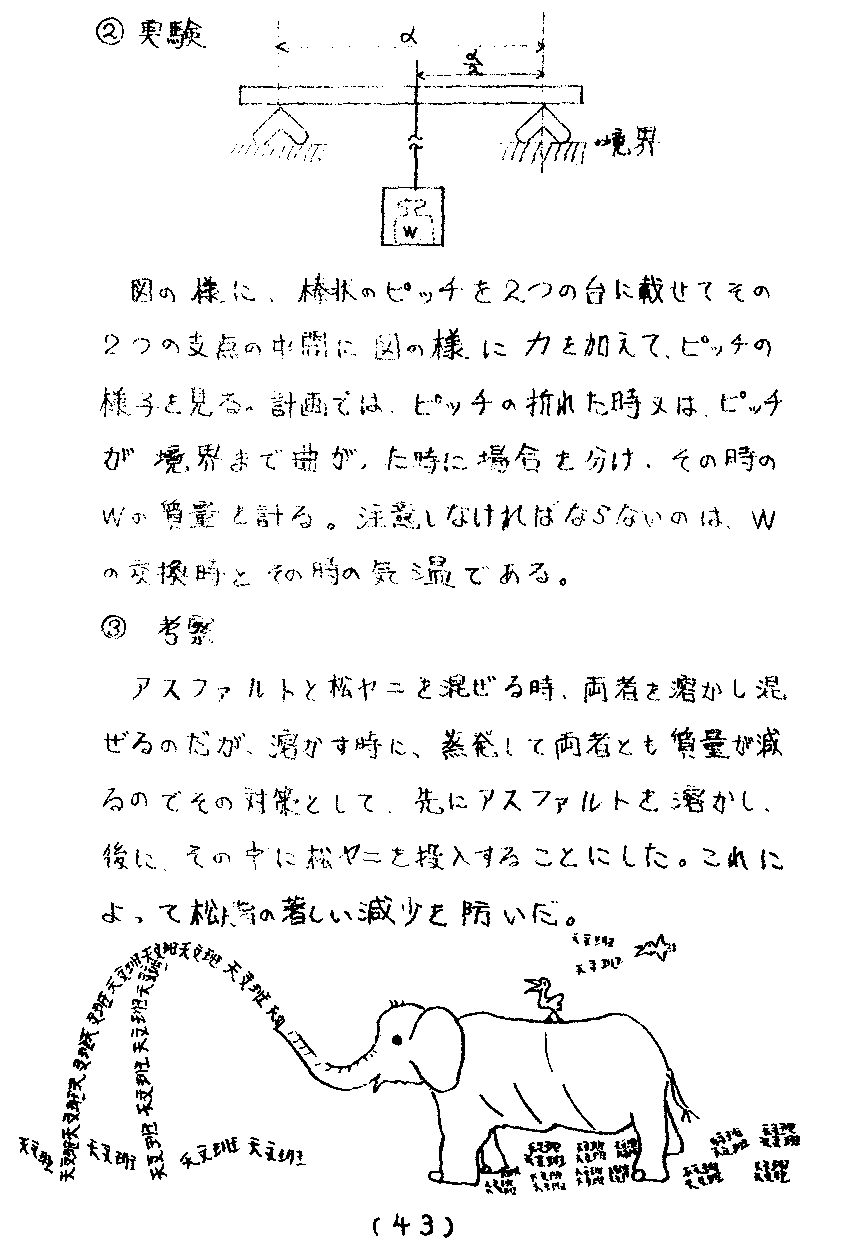 ② 実験
α
α/2
境界
W
図の様に、棒状のピッチを2つの台に載せてその
2つの支点の中間に図の様に力を加えて、ピッチの
様子を見る。計画では、ピッチの折れた時又は、ピッチ
が境界まで曲がった時に場合を分け、その時の
Wの質量を計る。注意しなければならないのは、W
の交換時とその時の気温である。
③ 考察
アスファルトと松ヤニを混ぜる時、両者を溶かし混
ぜるのだが、溶かす時に、蒸発して両者とも質量が減
るのでその対策として、先にアスファルトを溶かし、
後に、その中に松ヤニを投入することにした。これに
よって松脂の著しい減少を防いだ。
天文班
天文班
天文班天文班天文班天文班天文班天文班天文班
天文班天文班天文班天文班
天文班 天文班 天文班 天文班
天文班 天文班 天文班 天文班 天文班
天文班 天文班 天文班 天文班 天文班
(43)